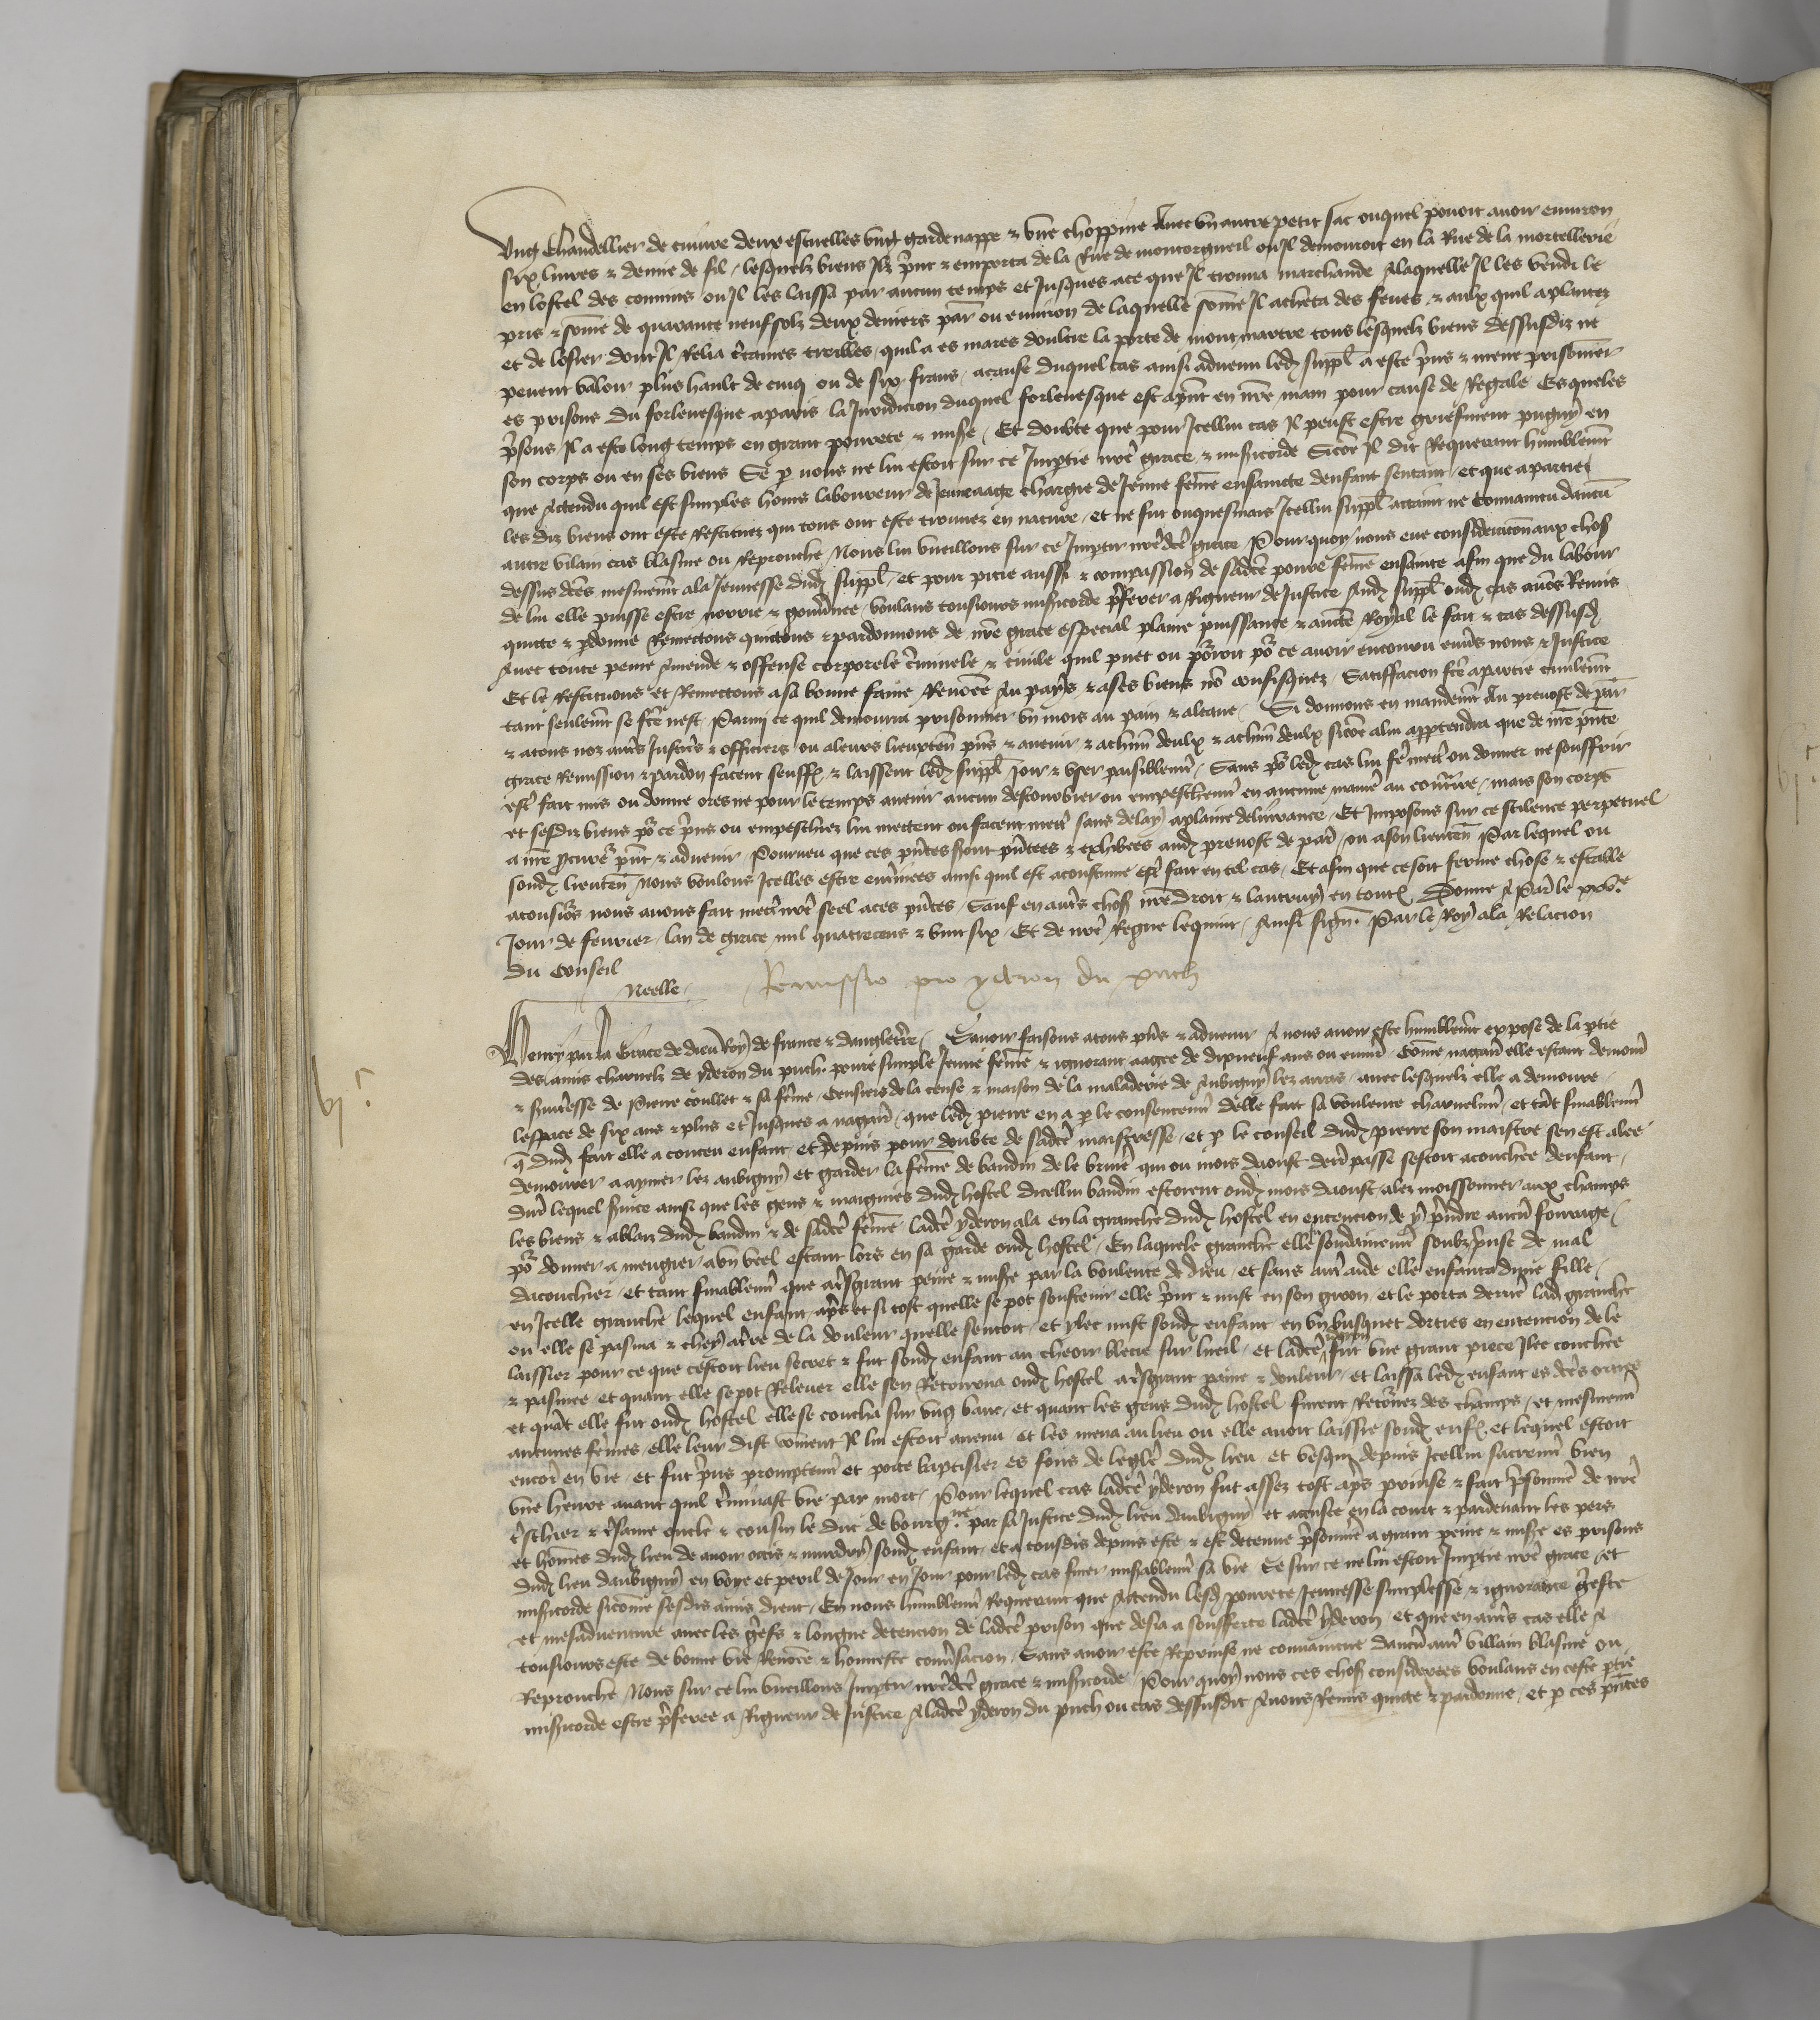 Ung chandellier de cuivre deux escuelles ung gardenappe & une choppine avec un autre petit sac ouquel povoit avoir environ
six livres & demie de fil / lesquelz biens Ilz print & emporta de la Rue de montorgueil ou Il demouroit en la Rue de la mortellerie
en lostel des comins ou Il les laissa par aucun temps et Jusques ace que Il trouva marchande Alaquelle Il les vendi le
pris & some de quarante neuf solz deux deniers par ou environ de laquelle some Il acheta des feves & aulx quil aplantez
et de losier dont Il Relia certaines treilles quil a es mares doultre la porte de montmartre tous lesquelz biens dessusdiz ne
pevent valoir plus hault de cinq ou de six frans / acause duquel cas ainsi advenu led suppl a este prins & mene prisonnier
es prisons du forlevesque aparis la Juridicion duquel forlevesque est apnt en nre main pour cause de Regale Esqueles
prisons Il a este long temps en grant povrete & misere / Et doubte que pour Icellui cas Il peust estre griefment pugny en
son corps ou en ses biens Se p nous ne lui estoit sur ce Impartie nre grace & misericorde Sicome Il dit Requerant humblement
que Actendu quil est simples homs laboureur de Jeune aage chargie de Jeune feme ensaincte denfant sentant / et que apartie
les diz biens ont este Restituez qui tous ont este trouvez en nature / et ne fut onquesmais Icellui suppl attaint ne convaincu daucun
autre vilain cas blasme ou Reprouche Nous lui vueillons sur ce Impartir nredce grace Pourquoy nous eue consideracion aux choses
dessus dces mesmement ala Jeunesse dud suppl / et pour pitie aussi & compassion de sadce povre feme ensainte afin que du labour
de lui elle puisse estre norrie & gouvnee / voulans tousiours misericorde preferer a Rigueur de Justice Aud suppl oud cas avons Remis
quitte & pdonne Remectons quittons & pardonnons de nre grace especial plaine puissance & aucte Royal le fait & cas dessusd
Avec toute peine Amende & offense corporele criminele & civile quil puet ou porroit por ce avoir encouru envers nous & Justice
Et le Restituons et Remectons asa bonne fame Renomee Au pays & ases biens non confisquez / Satiffacion fce apartie civilement
tant seulement se fce nest / Parmi ce quil demourra prisonnier un mois au pain & aleaue / Si donnons en mandement Au prevost de par
& atous noz aures Justiciers & officiers ou aleurs lieuxten pns & avenir & achun deulx & achun deulx sicome alui appartendra que de nre pnte
grace Remission & pardon facent seuffrent & laissent led suppl Joir & user paisiblement / Sans por led cas lui fe mectre ou donner ne souffrir
estre fait mis ou donne ores ne pour le temps avenir aucun destourbier ou empeschement en aucune maniere au contraire / mais son corps
et sesdiz biens por ce prins ou empeschiez lui mectent ou facent mectre sans delay aplaine delivrance / Et Imposons sur ce silence perpetuel
a nre procureur pnt & advenir / Pourveu que ces pntes soient pntees & exhibees aud prevost de par ou ason lieuten Par lequel ou
sond lieuten Nous voulons Icelles estre enterinees ainsi quil est acoustume estre fait en tel cas / Et afin que ce soit ferme chose & estable
atousiors nous avons fait mectre nre seel aces pntes / Sauf en aures choses nre droit & lautruy en toutes Donne A Paris le xxve
Jour de fevrier / lan de grace mil quatrecens & vint six / Et de nre Regne le quint / Ainsi signe Par le Roy ala Relacion
du Conseil
Neelle / Remissio pro yderon du puch
vj c
Henry par la Grace de dieu Roy de france & dangleterre / Savoir faisons atous pns & advenir A nous avoir este humblement expose de la ptie
des amis charnelz de yderon du puch povre simple Jeune feme & ignorant aagee de dixneuf ans ou environ / Come nagaires elle estant demourant
& servresse de Pierre Coullet & sa feme / Censiers de la cense & maison de la maladerie de Aubigny lez arras / avec lesquelz elle a demoure /
lespace de six ans & plus et Jusques a nagaires / que led pierre en a p le consentement delle fait sa voulente charnelment / et tant finablement
q dud fait elle a conceu enfant et depuis pour doubte de sadce maistresse / et p le conseil dud pierre son maistre sen est alee
demourer a aymer lez aubigny et garder la feme de baudin de le brune qui ou mois daoust derr passe sestoit acouchee denfant /
durant lequel service ainsi que les gens & maignies dud hostel dicellui baudin estoient oud mois daoust alez moissonner aux champs
les biens & ablaiz dud baudin & de sadce feme ladce yderon ala en la granche dud hostel en entencion de y prendre aucun fourrage /
por donner a mengier aun veel estant lors en sa garde oud hostel / En laquele granche elle soudainement soubzprinse de mal
dacouchier / et tant finablement que a tresgrant peine & misere par la voulente de dieu / et sans autre aide elle enfanta dune fille /
en Icelle granche lequel enfant apres et si tost quelle se pot soustenir elle print & mist en son giron / et le porta derriere lad granche
ou elle se pasma & chey a terre de la douleur quelle sentoit / et ylec mist sond enfant en un busquet dorties en entencion de le
laissier pour ce que cestoit lieu secret & fut sond enfant au cheoir blecie sur lueil / et ladce yderon fut une grant piece Ilec couchee
& pasmee et quant elle se pot Relever elle sen Retourna oud hostel a tresgrant peine & douleur / et laissa led enfant es dces orties
et quant elle fut oud hostel elle se coucha sur ung banc / et quant les gens dud hostel furent Retournez des champs / et mesmement
aucunes femes elle leur dist coment Il lui estoit avenu et les mena au lieu ou elle avoit laissie sond enf. et lequel estoit
encor en vie / et fut prins promptement et porte baptisier es fons de leglise dud lieu et vesqui depuis Icellui sacrement bien
une heure avant quil terminast vie par mort / Pour lequel cas ladce yderon fut assez tost apres prinse & fait prisonniere de nre
treschier & tresame oncle & cousin le duc de bourgne par sa Justice dud lieu daubigny et accusee en la court & pardevant les pers
et homes dud lieu de avoir occis & murdry sond enfant / et a tousdis depuis este & est detenue prisonniere a grant peine & misere es prisons
dud lieu daubigny en voye et peril de Jour en Jour pour led cas finer miserablement sa vie Se sur ce ne lui estoit Impartie nre grace / et
misericorde sicome sesdis amis dient / En nous humblement Requerant que Actendu lesd povrete Jeunesse simplesse & ignorance geste
et mesadventure avec les griefs & longue detencion de ladce prison que desia a soufferte ladce yderon et que en aures cas elle A
tousiours este de bonne vie Renomee & honneste conversacion / Sans avoir este Reprinse ne convaincue daucun autre villain blasme ou
Reprouche Nous sur ce lui vueillons Impartir nredce grace & misericorde Pour quoy nous ces choses considerees voulans en ceste ptie
misericorde estre preferee a Rigueur de Justice A ladce yderon du puch ou cas dessusdit Avons Remis quicte & pardonne / et p ces pntes